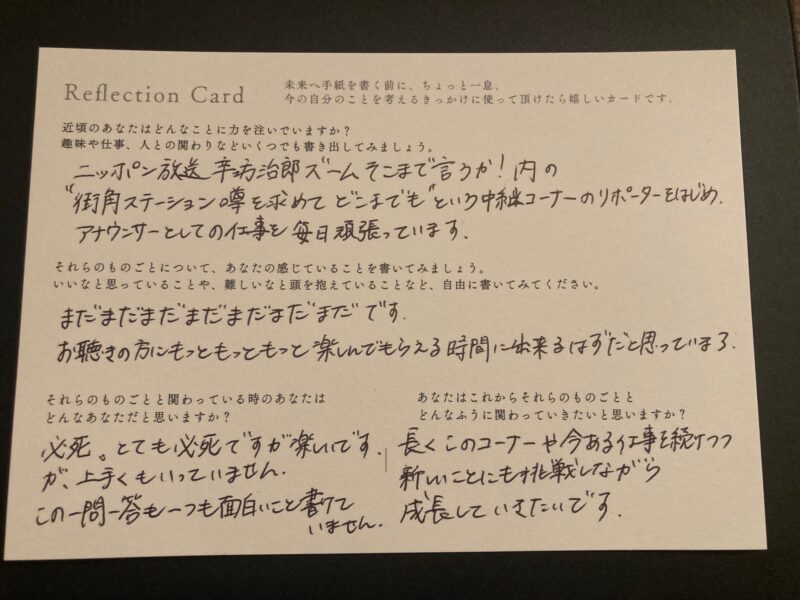 Reflection Card
未来へ手紙を書く前に、ちょっと一息。
今の自分のことを考えるきっかけに使って頂けたら嬉しいカードです。
近頃のあなたはどんなことに力を注いでいますか？
趣味や仕事、人との関わりなどいくつでも書き出してみましょう。
ニッポン放送 辛坊治郎ズーム そこまで言うか！内の
"街角ステーション噂を求めて どこまでも"という中継コーナーのリポーターをはじめ、
アナウンサーとしての仕事を毎日頑張っています。
それらのものごとについて、あなたの感じていることを書いてみましょう。
いいなと思っていることや、難しいなと頭を抱えていることなど、自由に書いてみてください。
まだまだまだまだまだまだまだです。
お聴きの方にもっともっともっと楽しんでもらえる時間に出来るはずだと思っています。
それらのものごとと関わっている時のあなたは
どんなあなただと思いますか？
必死。とても必死ですが楽しいです。
が、上手くもいっていません。
この一問一答も一つも面白いこと書けて
いません。
あなたはこれからそれらのものごとと
どんなふうに関わっていきたいと思いますか？
長くこのコーナーや今ある仕事を続けつつ
新しいことにも挑戦しながら
成長していきたいです。